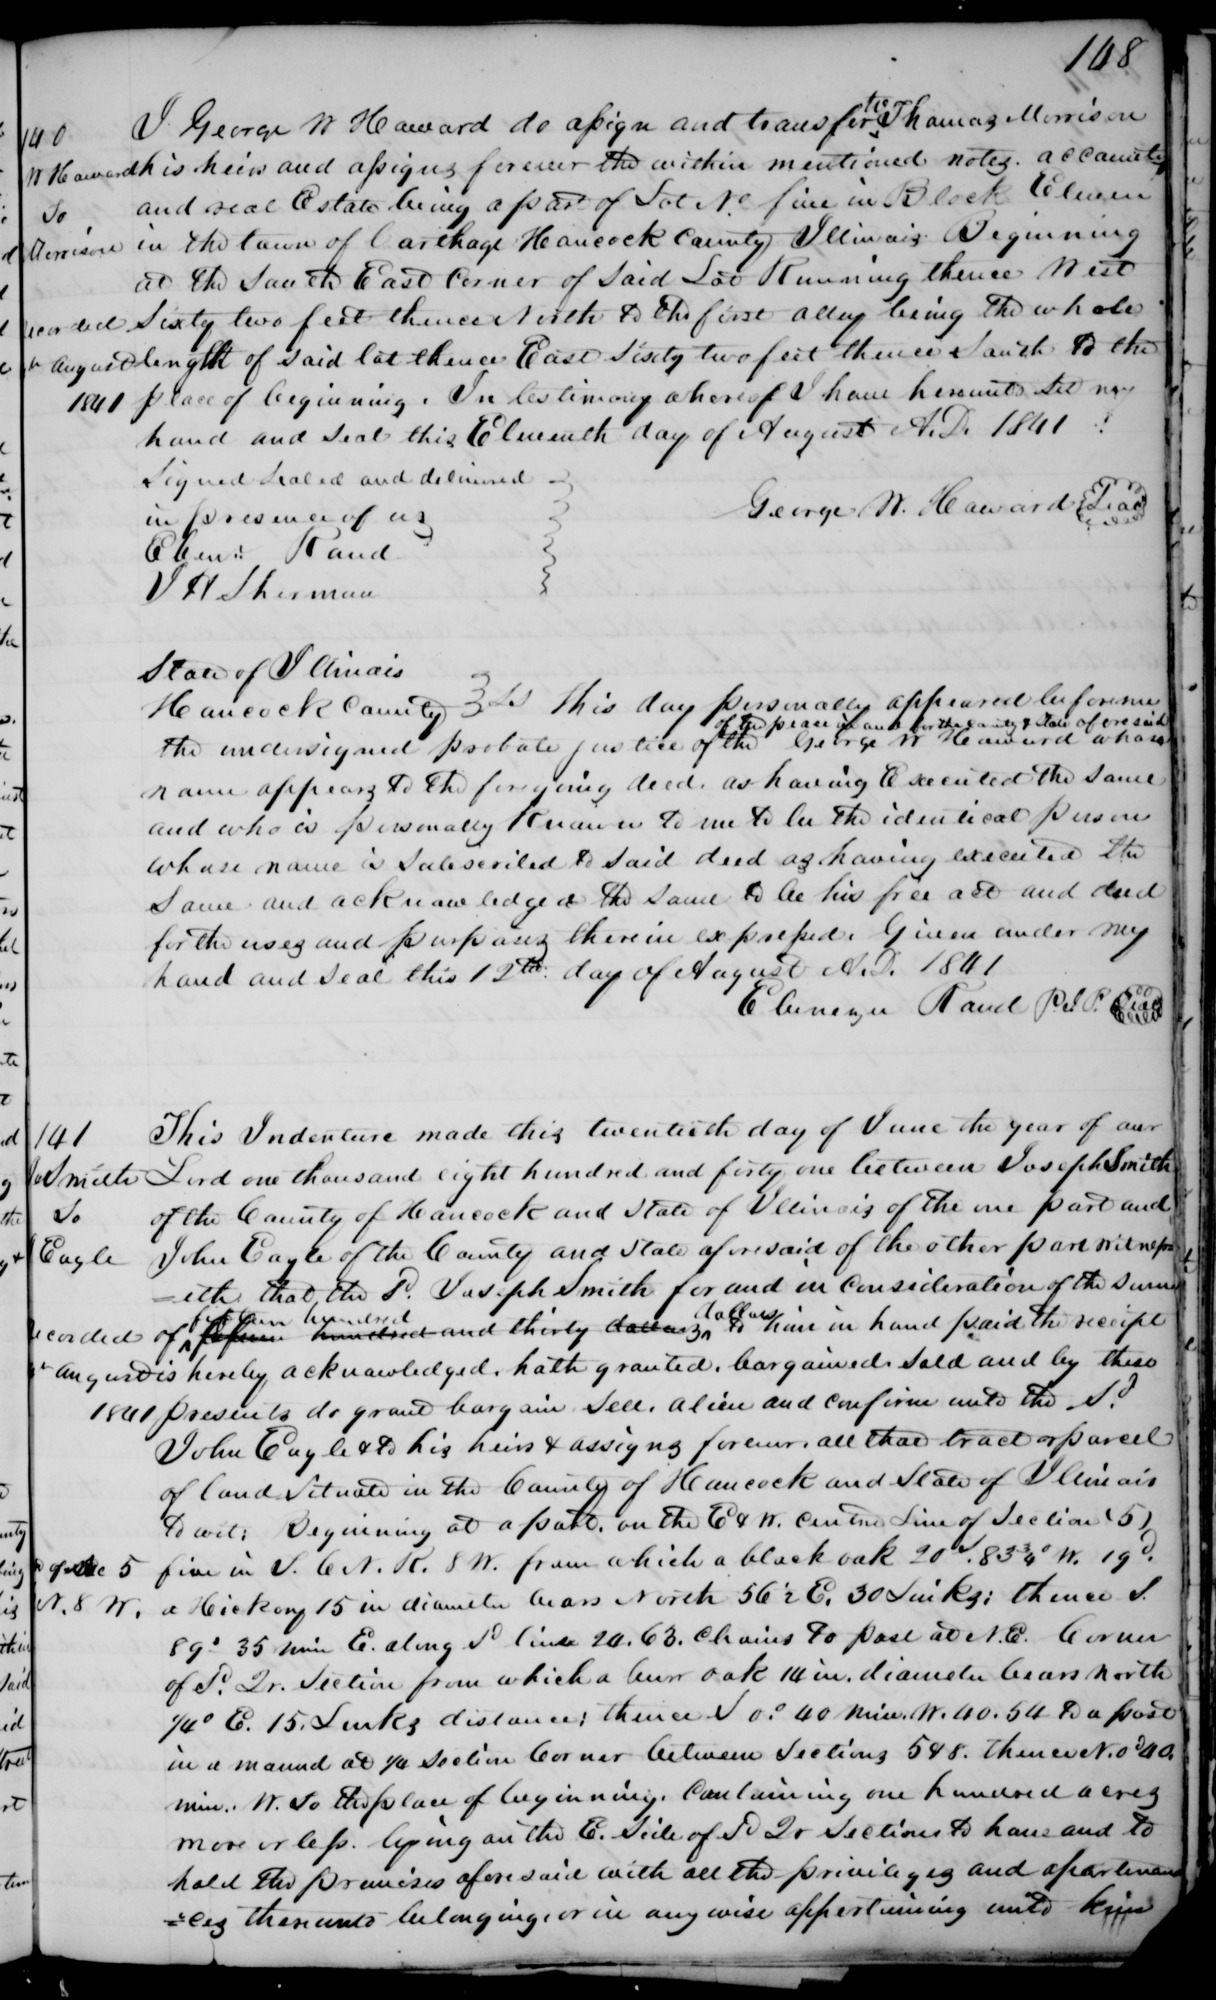 108
140
W Haward
To
Morrison
recorded
August
1841
I George W Haward do assign and transfer to Thomas Morrison
his heirs and assigns forever the within mentioned notes. accounts
and real Estate being a part of Lot No five in Block Eleven
in the town of Carthage Hancock County Illinois Beginning
at the South East Corner of Said Lot Running thence West
Sixty two feet thence North to the first alley being the whole
lenght of said lot thence East Sixty two feet thence South to the
place of beginning. In testimony whereof I have hereunto Set my
hand and Seal this Eleventh day of August A.D. 1841
Signed Sealed and delivered
in presence of us
Eben: Rand
J H Sherman
George W. Haward Seal
State of Illinois
Hancock County Ss This day personally appeared before me
of the peace in and for the County & State aforesaid
the undersigned probate justice of the George W Haward whose
name appears to the foregoing deed. as having Executed the same
and who is personally Known to me to be the identical person
whose name is Subscribed to said deed as having executed the
Same and acknowledged the Same to be his free act and deed
for the uses and purposes therein expressed. Given under my
hand and Seal this 12th day of August A.D. 1841
Ebenezer Rand P.J.P. Seal
141
Jos Smith
To
Eagle
recorded
August
1841
of Sec 5
N. 8 W.
This Indenture made this twentieth day of June the year of our
Lord one thousand eight hundred and forty one between Joseph Smith
of the County of Hancock and State of Illinois of the one part and
John Eagle of the County and State aforesaid of the other part Witness
=eth that the Sd. Joseph Smith for and in Consideration of the Sum
fifteen hundred dollars
of fifteen hundred and thirty dollars to him in hand paid the receipt
is hereby acknowledged. hath granted. bargained. Sold and by these
presents do grant bargain Sell. alien and Confirm unto the Sd.
John Eagle & to his heirs & assigns forever. all that tract or parcel
of land Situate in the County of Hancock and State of Illinois
to wit: Beginning at a post. on the E & W. Centre Line of Section (5)
five in T. 6 N. R. 8 W. from which a black oak 20 S. 83¾° W. 19 d.
a Hickory 15 in diameter bears North 56½ E. 30 Links; thence S.
89° 35 min E. along Sd line 24.63. Chains to post at N.E. Corner
of Sd. Qr. Section from which a burr oak 14 in. diameter bears North
¼° E. 15. Links distance; thence S 0.° 40 min. W. 40.54 to a post
in a mound at ¼ Section Corner between Sections 5 & 8. thence N. 0° 40
min. W. To the place of beginning. Containing one hundred acres
more or less. lying on the E. Side of Sd Qr Section to have and to
hold the premises aforesaid with all the privileges and apartenan
=ces thereunto belonging. or in any wise appertaining unto him